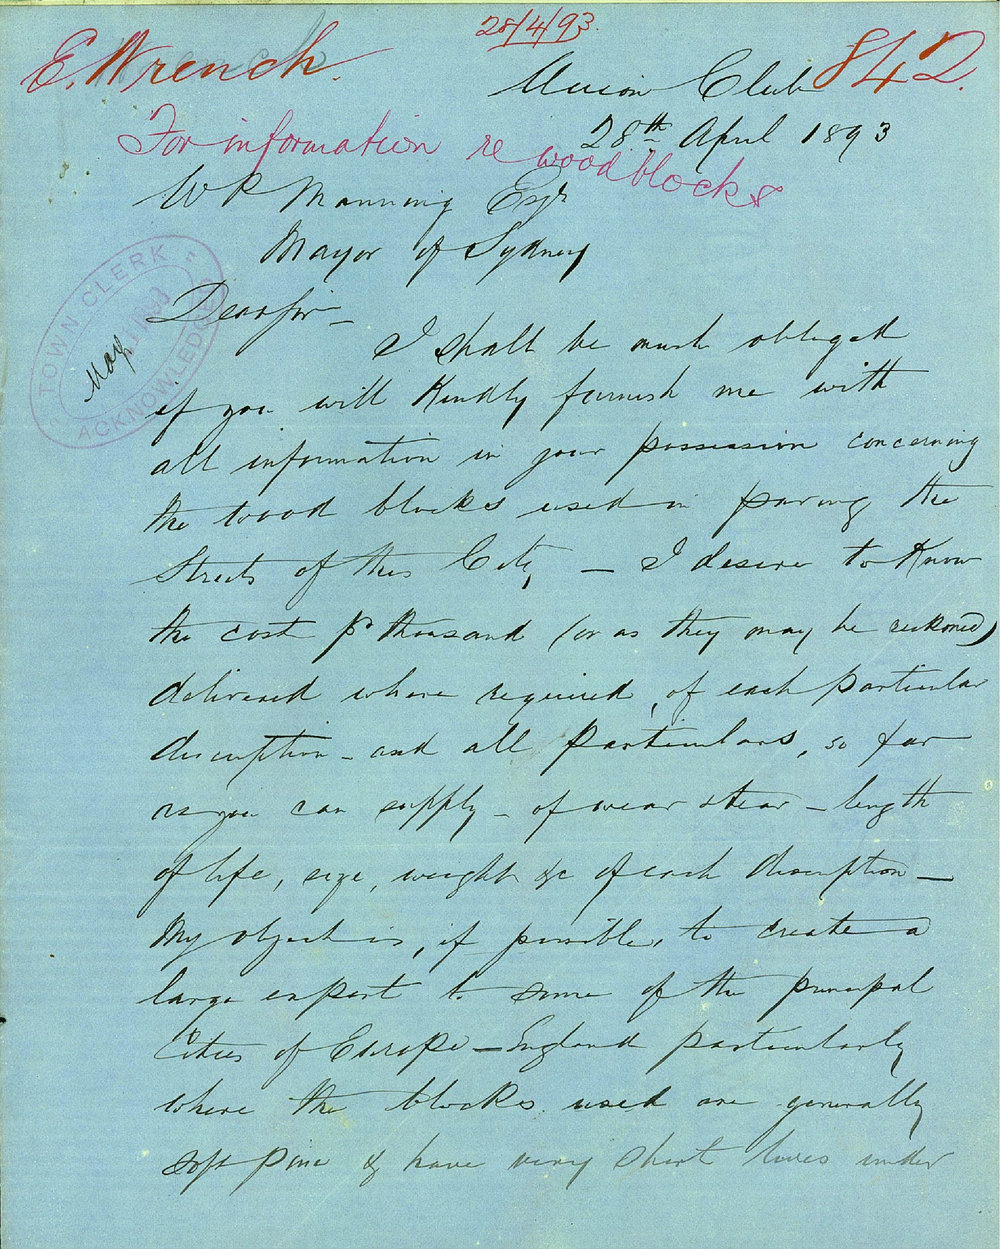 28/4/93.
E. Wrench.
842.
Union Club
28th April 1893
For information re woodblocks
W P Manning Esqr
Mayor of Sydney
TOWN CLERK
May 1893
ACKNOWLEDGED
Dear Sir –
I shall be much obliged
if you will Kindly furnish me with
all information in your possession concerning
the wood blocks used in paving the
Streets of this City, – I desire to Know
the cost pr thousand (or as they may be reckoned)
delivered where required, of each particular
description – and all particulars, so far
as you can supply – of wear & tear – length
of life, size, weight &c of each description –
My object is, if possible, to create a
large export to some of the principal
Cities of Europe – England particularly
where the blocks used are generally
soft pine & have very short lives under